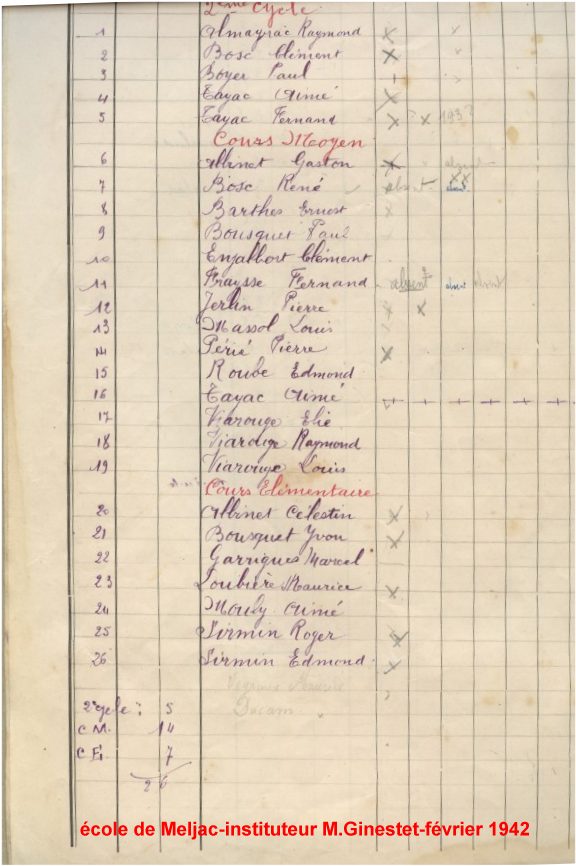 2ème Cycle
1 Almayrac Raymond x x
2 Bosc Clément x
3 Boyer Paul -
4 Tayac Aimé x
5 Tayac Fernand x ? x 193?
Cours Moyen
6 Albinet Gaston x absent
7 Bosc René absent xx abs
8 Barthes Ernest x
9 Bousquet Paul
10 Enjalbert Clément
11 Fraysse Fernand absent abs absent
12 Jerlin Pierre x x
13 Massol Louis
14 Périé Pierre x
15 Roube Edmond
16 Tayac Aimé + + + + + +
17 Viarouge Elie
18 Viarouge Raymond
19 Viarouge Louis
Cours Elémentaire
20 Albinet Célestin x
21 Bousquet Yvon x
22 Garrigues Marcel
23 Loubière Maurice x
24 Mouly Aimé
25 Sirmin Roger x
26 Sirmin Edmond x
2e cycle : 5
C.M. 14
C.E. 7
26
école de Meljac-instituteur M.Ginestet-février 1942